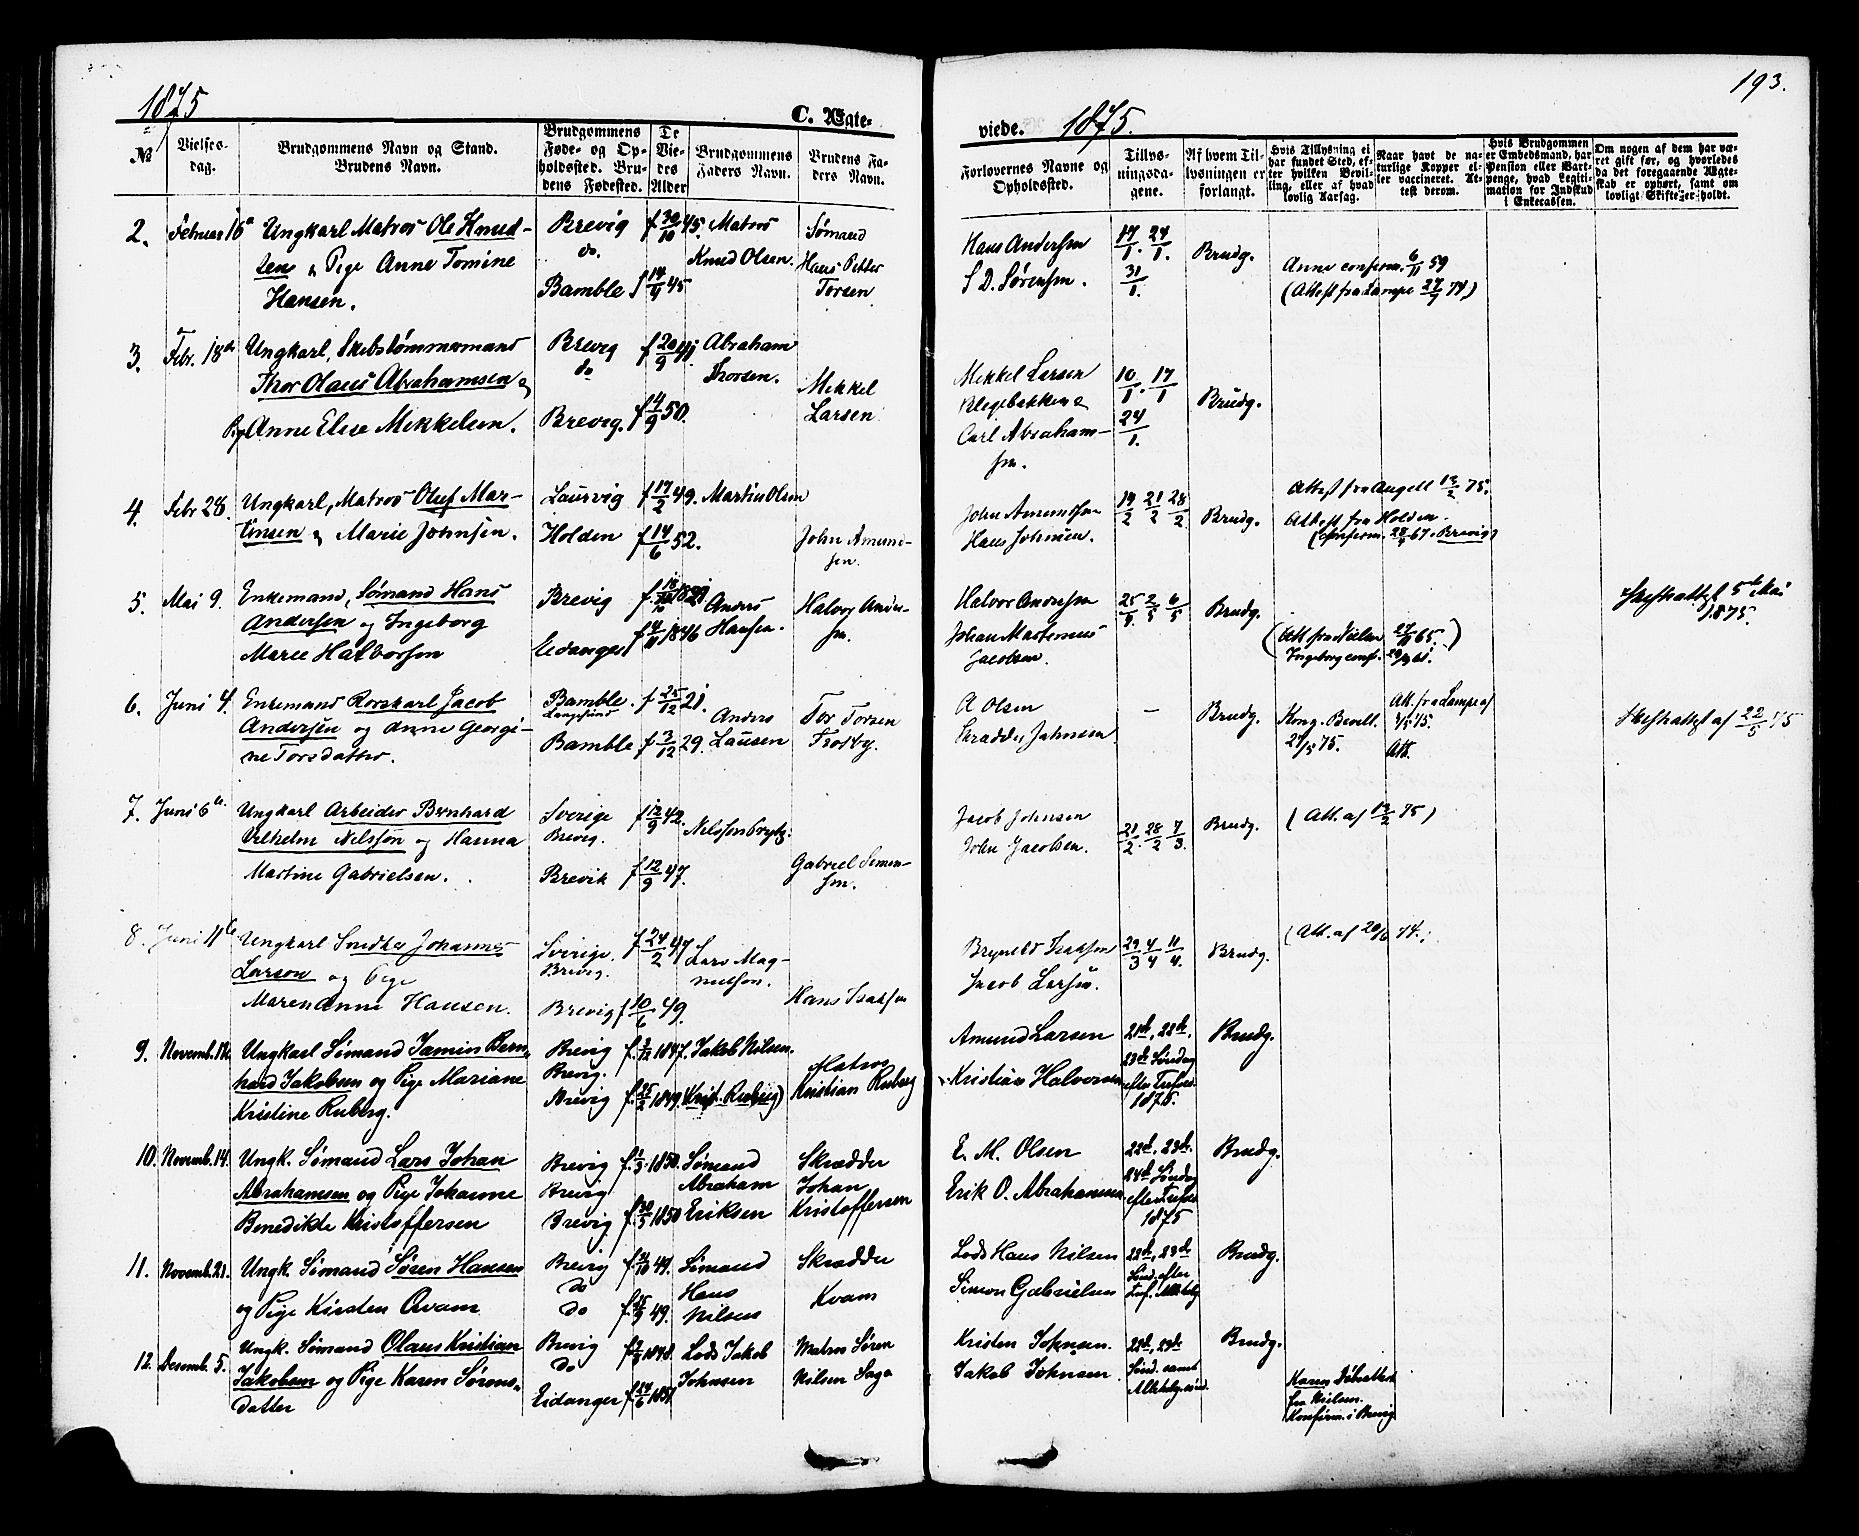 193.
1875
C. Ægte-
viede. 1875.
№
Vielses-
dag.
Brudgommens Navn og Stand.
Brudens Navn.
Brudgommens
Føde- og Op-
holdssted. Bru-
dens Fødested.
De
Vie-
des
Alder
Brudgommens
Faders Navn.
Brudens Fa-
ders Navn.
Forlovernes Navne og
Opholdssted.
Tillys-
ningsda-
gene.
Af hvem Til-
lysningen er
forlangt.
Hvis Tillysning ei
har fundet Sted, ef-
ter hvilken Bevil-
ling, eller af hvad
lovlig Aarsag.
Naar havt de na-
turlige Kopper el-
ler vaccineret. At-
test derom.
Hvis Brudgommen
er Embedsmand, har
Pension eller Vart-
penge, hvad Legiti-
mation for Indskud
i Enkecassen.
Om nogen af dem har væ-
ret gift før, og hvorledes
da det foregaaende Ægte-
skab er ophørt, samt om
lovligt Skifte er holdt.
2. Februar 16
Ungkarl Matros Ole Knud-
sen & Pige Anne Tomine
Hansen.
Brevig
do.
Bamble
f 30/10 45.
f 14/9 45
Matros
Knud Olsen.
Sømand
Hans Petter
Torsen
Hans Andersen
S. D. Sørensen.
17/1. 24/1.
31/1.
Brudg.
Anne conferm. 6/11 59
(Attest fra Lampe 27/9 74)
3. Febr. 18de
Ungkarl, Skibstømmermand
Thor Olaus Abrahamsen &
Pg Anne Elise Mikkelsen.
Brevig
do
Brevig.
f 20/9 41
f 4/9 50.
Abraham
Thorsen.
Mikkel
Larsen
Mikkel Larsen
Blegebakken &
Carl Abraham-
sen.
10/1. 17/1
24/1.
Brudg.
4. Febr 28.
Ungkarl, Matros Oluf Mar-
tinsen & Marie Johnsen.
Laurvig
Holden
f 17/2 49.
f 14/6 52.
Martin Olsen
John Amund-
sen.
John Amundsen
Hans Johnsen.
14/2 21/2 28/2
Brudg.
Attest fra Angell 13/2 75.
Attest fra Holden.
(conferm. 28/4 67 i Brevig)
5. Mai 9.
Enkemand, Sømand Hans
Andersen og Ingeborg
Marie Halvorsen
Brevig
Eidanger
f 18/10 1821
f 4/11 1846
Anders
Hansen.
Halvor Ander-
sen.
Halvor Andersen
Johan Martinius
Jacobsen.
25/4 2/5 6/5
Brudg.
(Att fra Nielsen 27/11 65.)
Ingeborg conf. 29/9 61.
Skifteattest 5te Mai
1875.
6. Juni 4.
Enkemand Rorskarl Jacob
Andersen og Anne Georgi-
ne Torsdatter.
Bamble.
Langesund
Bamble
f 25/12 21.
f 3/12 29.
Anders
Lausen
Tor Torsen
Trosby.
A Olsen
Skrædder Johnsen
—
Brudg.
Kong. Bevill.
24/5 75.
Att. fra Lampe af
3/5 75.
Att.
Skifteattest af 22/5 75
7. Juni 6te.
Ungkarl Arbeider Bernhard
Vilhelm Nilsson og Hanna
Martine Gabrielsen.
Sverige
Brevig.
Brevik
f 12/9 42.
f 12/9 47.
Gabriel Simon-
sen.
Jacob Johnsen
John Jacobsen.
21/2. 28/2 7/3.
Brudg.
(Att. af 13/2 75)
8. Juni 11te
Ungkarl Snedker Johannes
Larson og Pige
Maren Anne Hansen.
Sverige.
Brevig.
Brevig
f 24/2 47
f 10/6 49.
Lars Mag-
nuson.
Hans Isaksen
Brynild Isaksen
Jacob Larsen.
29/3 4/4 11/4.
Brudg.
(Att. af 20/6 74.)
9. Novemb. 12.
Ungkarl Sømand Jamin Bern-
hard Jakobsen og Pige Mariane
Kristine Ruberg.
Brevig
Brevig.
Brevig
f. 3/12 1847.
f. 25/2 1849.
Jakob Nilsen.
(Krist. Ruberg)
Matros
Kristian Ruberg
Amund Larsen
Kristian Halvorsen
21de, 22de,
23de Søndag
efter Trefold.
1875.
Brudg.
10. Novemb. 14.
Ungk. Sømand Lars Johan
Abrahamsen og Pige Johanne
Benedikte Kristoffersen
Brevig
Brevig
Brevig
1850
f. 30/5 1850
Sømand
Abraham
Eriksen
Skrædder
Johan
Kristoffersen
E. M. Olsen
Erik O. Abrahamsen
22de, 23de,
24de Søndag
efter Trefold.
1875
Brudg.
11. Novemb. 21.
Ungk. Sømand Søren Hansen
og Pige Kirsten Qvam
Brevig
do
do
49.
49.
Sømand
Hans
Nilsen
Skrædder
Kvam
Lods Hans Nilsen
Simon Gabrielsen
22de, 23de
Sønd. efter
Tref. Allehelg.
Brudg.
12. Desemb. 5.
Ungk. Sømand Olaus Kristian
Jakobsen og Pige Karen Sørens-
datter
Brevig
do
Eidanger
1848.
f. 24/6 1851
Lods Jakob
Johnsen
Matros Søren
Nilsen Saga
Kristen Johnsen.
Jakob Johnsen
22de, 24de
Sønd. samt
Allehelg. sønd.
Brudg.
Karen Døbeattest
fra Nielsen.
Konfirm. i Brevig